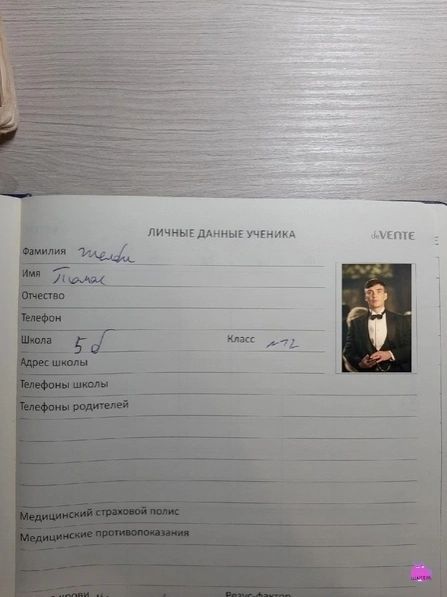 ЛИЧНЫЕ ДАННЫЕ УЧЕНИКА deVENTE
Фамилия Шелби
Имя Томас
Отчество
Телефон
Школа 5б Класс №12
Адрес школы
Телефоны школы
Телефоны родителей
Медицинский страховой полис
Медицинские противопоказания
крови Резус-фактор